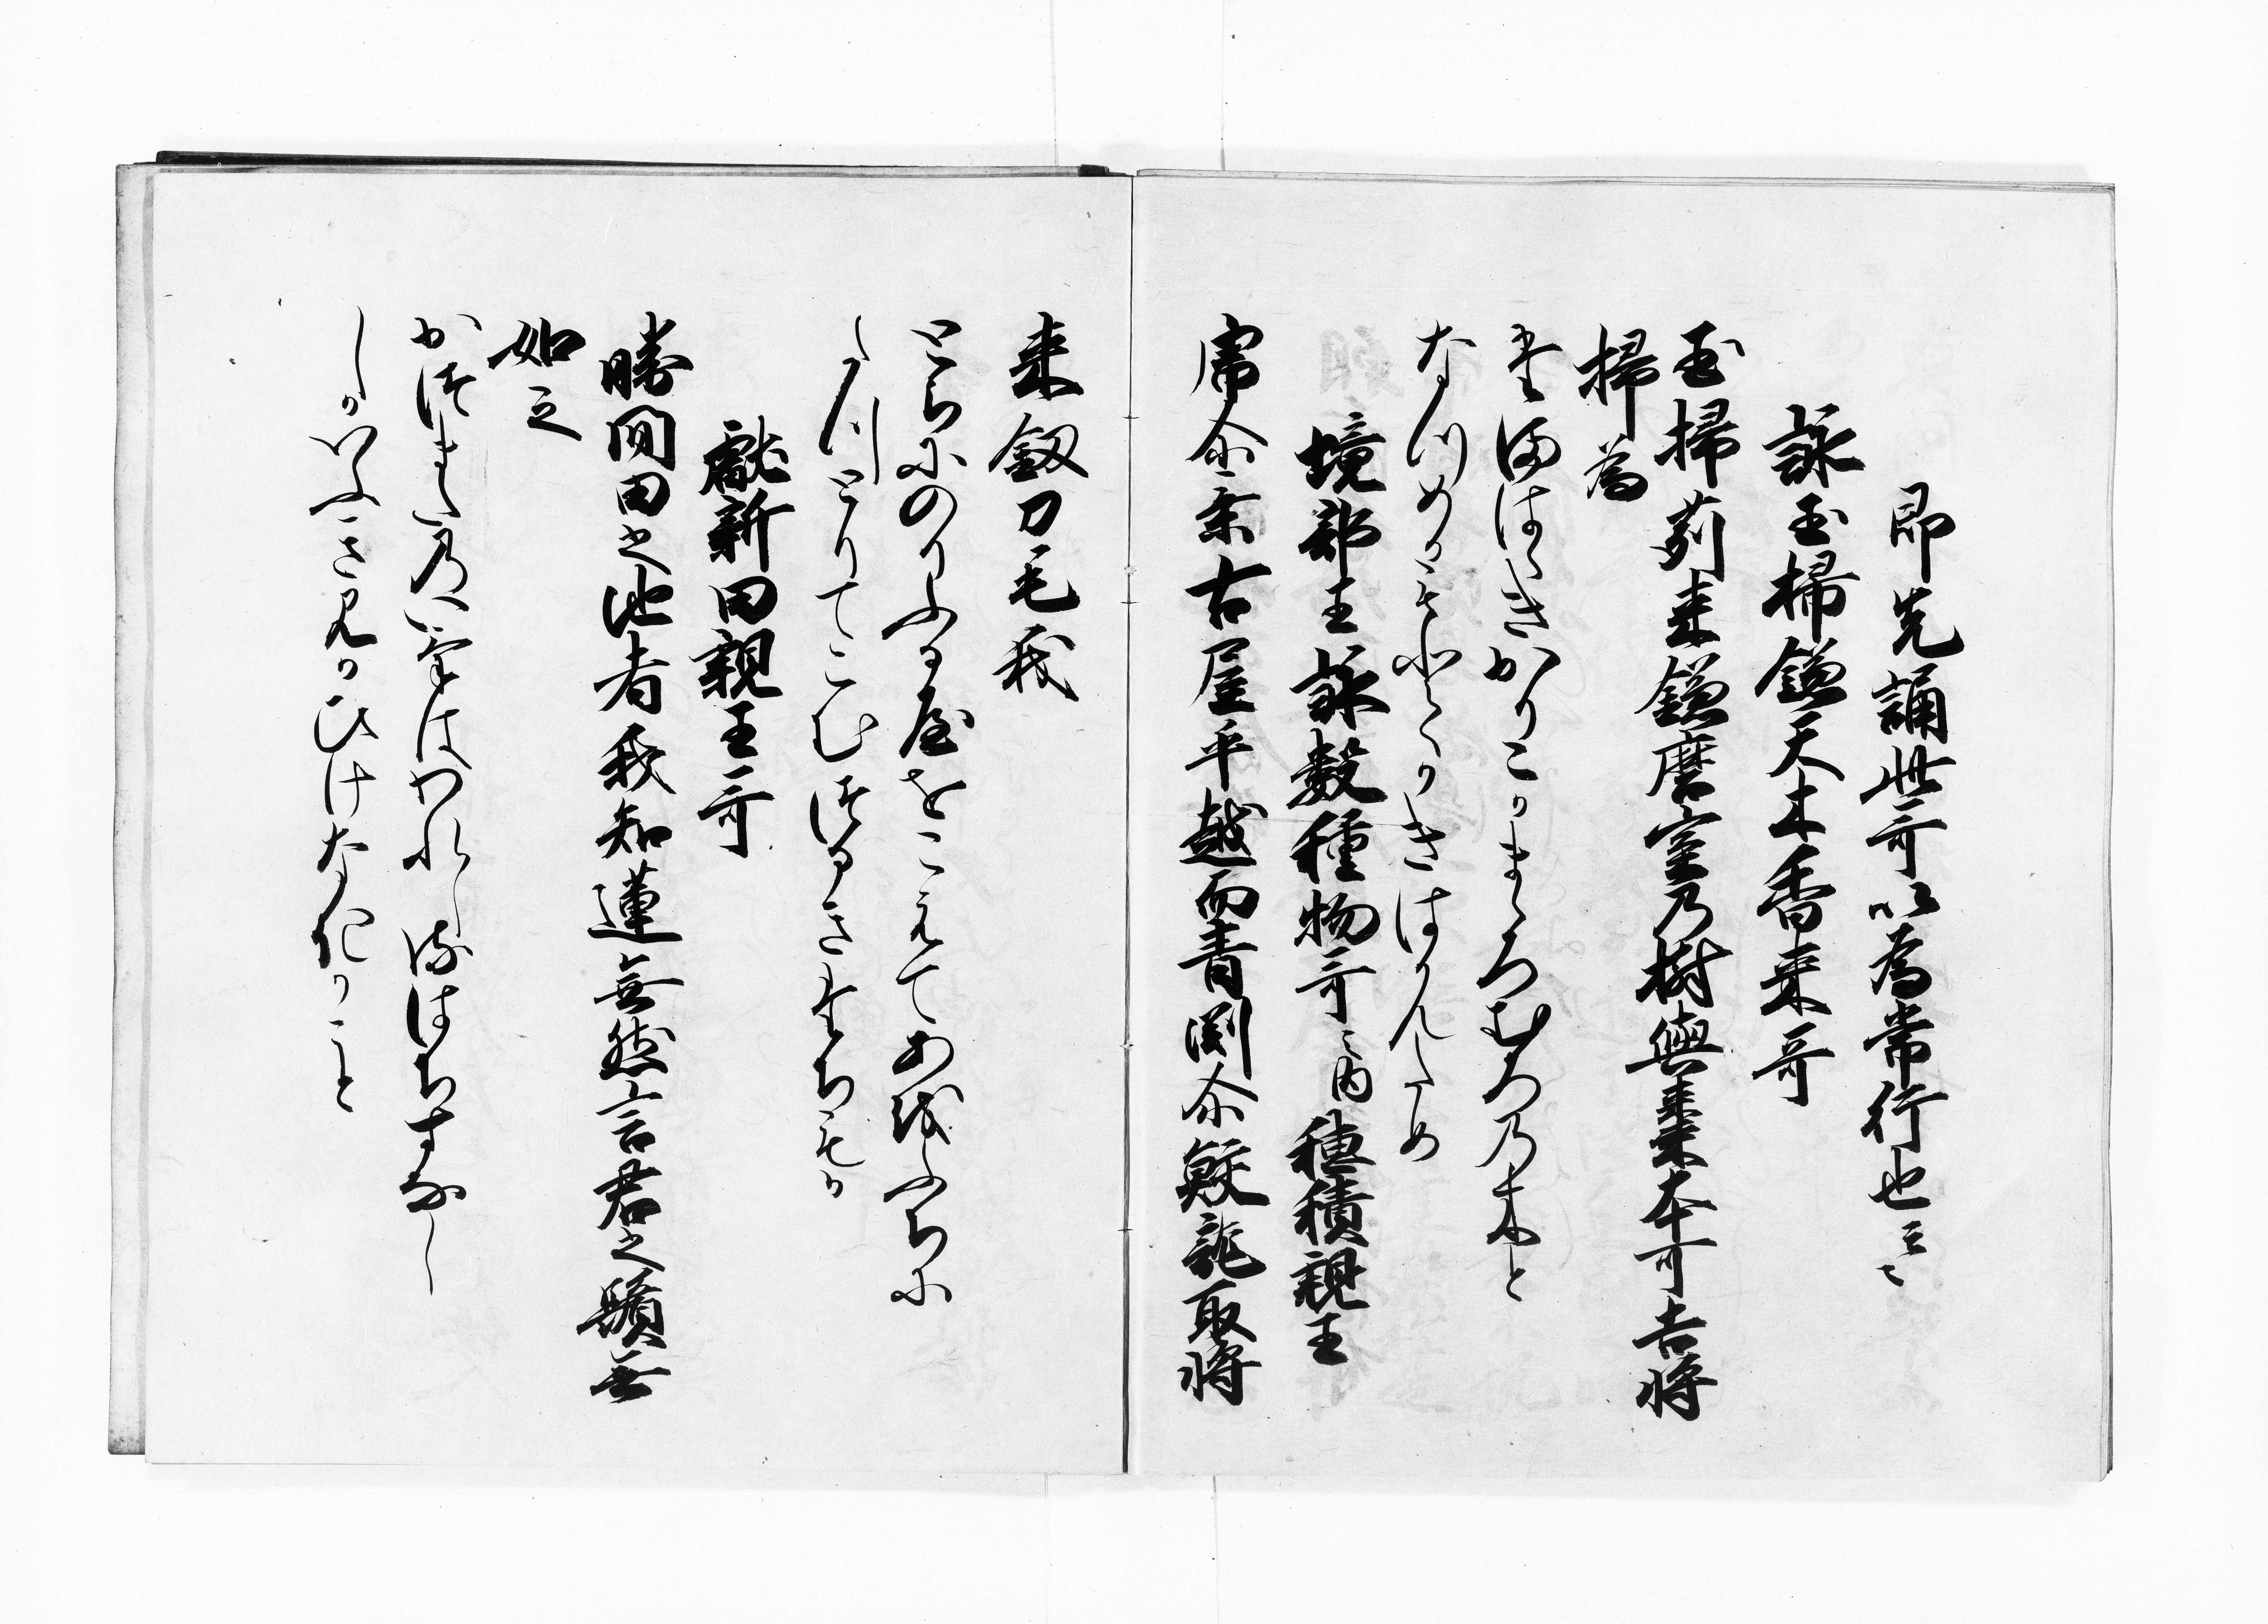 即先誦此哥以為常行也云々
詠玉掃鎌天木香来哥
玉掃苅来鎌麿室乃樹與棗本可吉将
掃為
たまはゝきかりこかまゝろむろの木と
なつめかもとゝかきはかんため
境部王詠数種物哥之内穂積親王
虎尒乗古屋乎越而青渕尒鮫龍取将
来釼刀毛我
とらにのりふる屋をこえてあをふちに
たつとりてこむつるきたちもか
献新田親王哥
勝間田之池者我知蓮無然言君之鬚無
如之
かつまたの池はわれしるはちすなし
しかいふきみかひけなきかこと